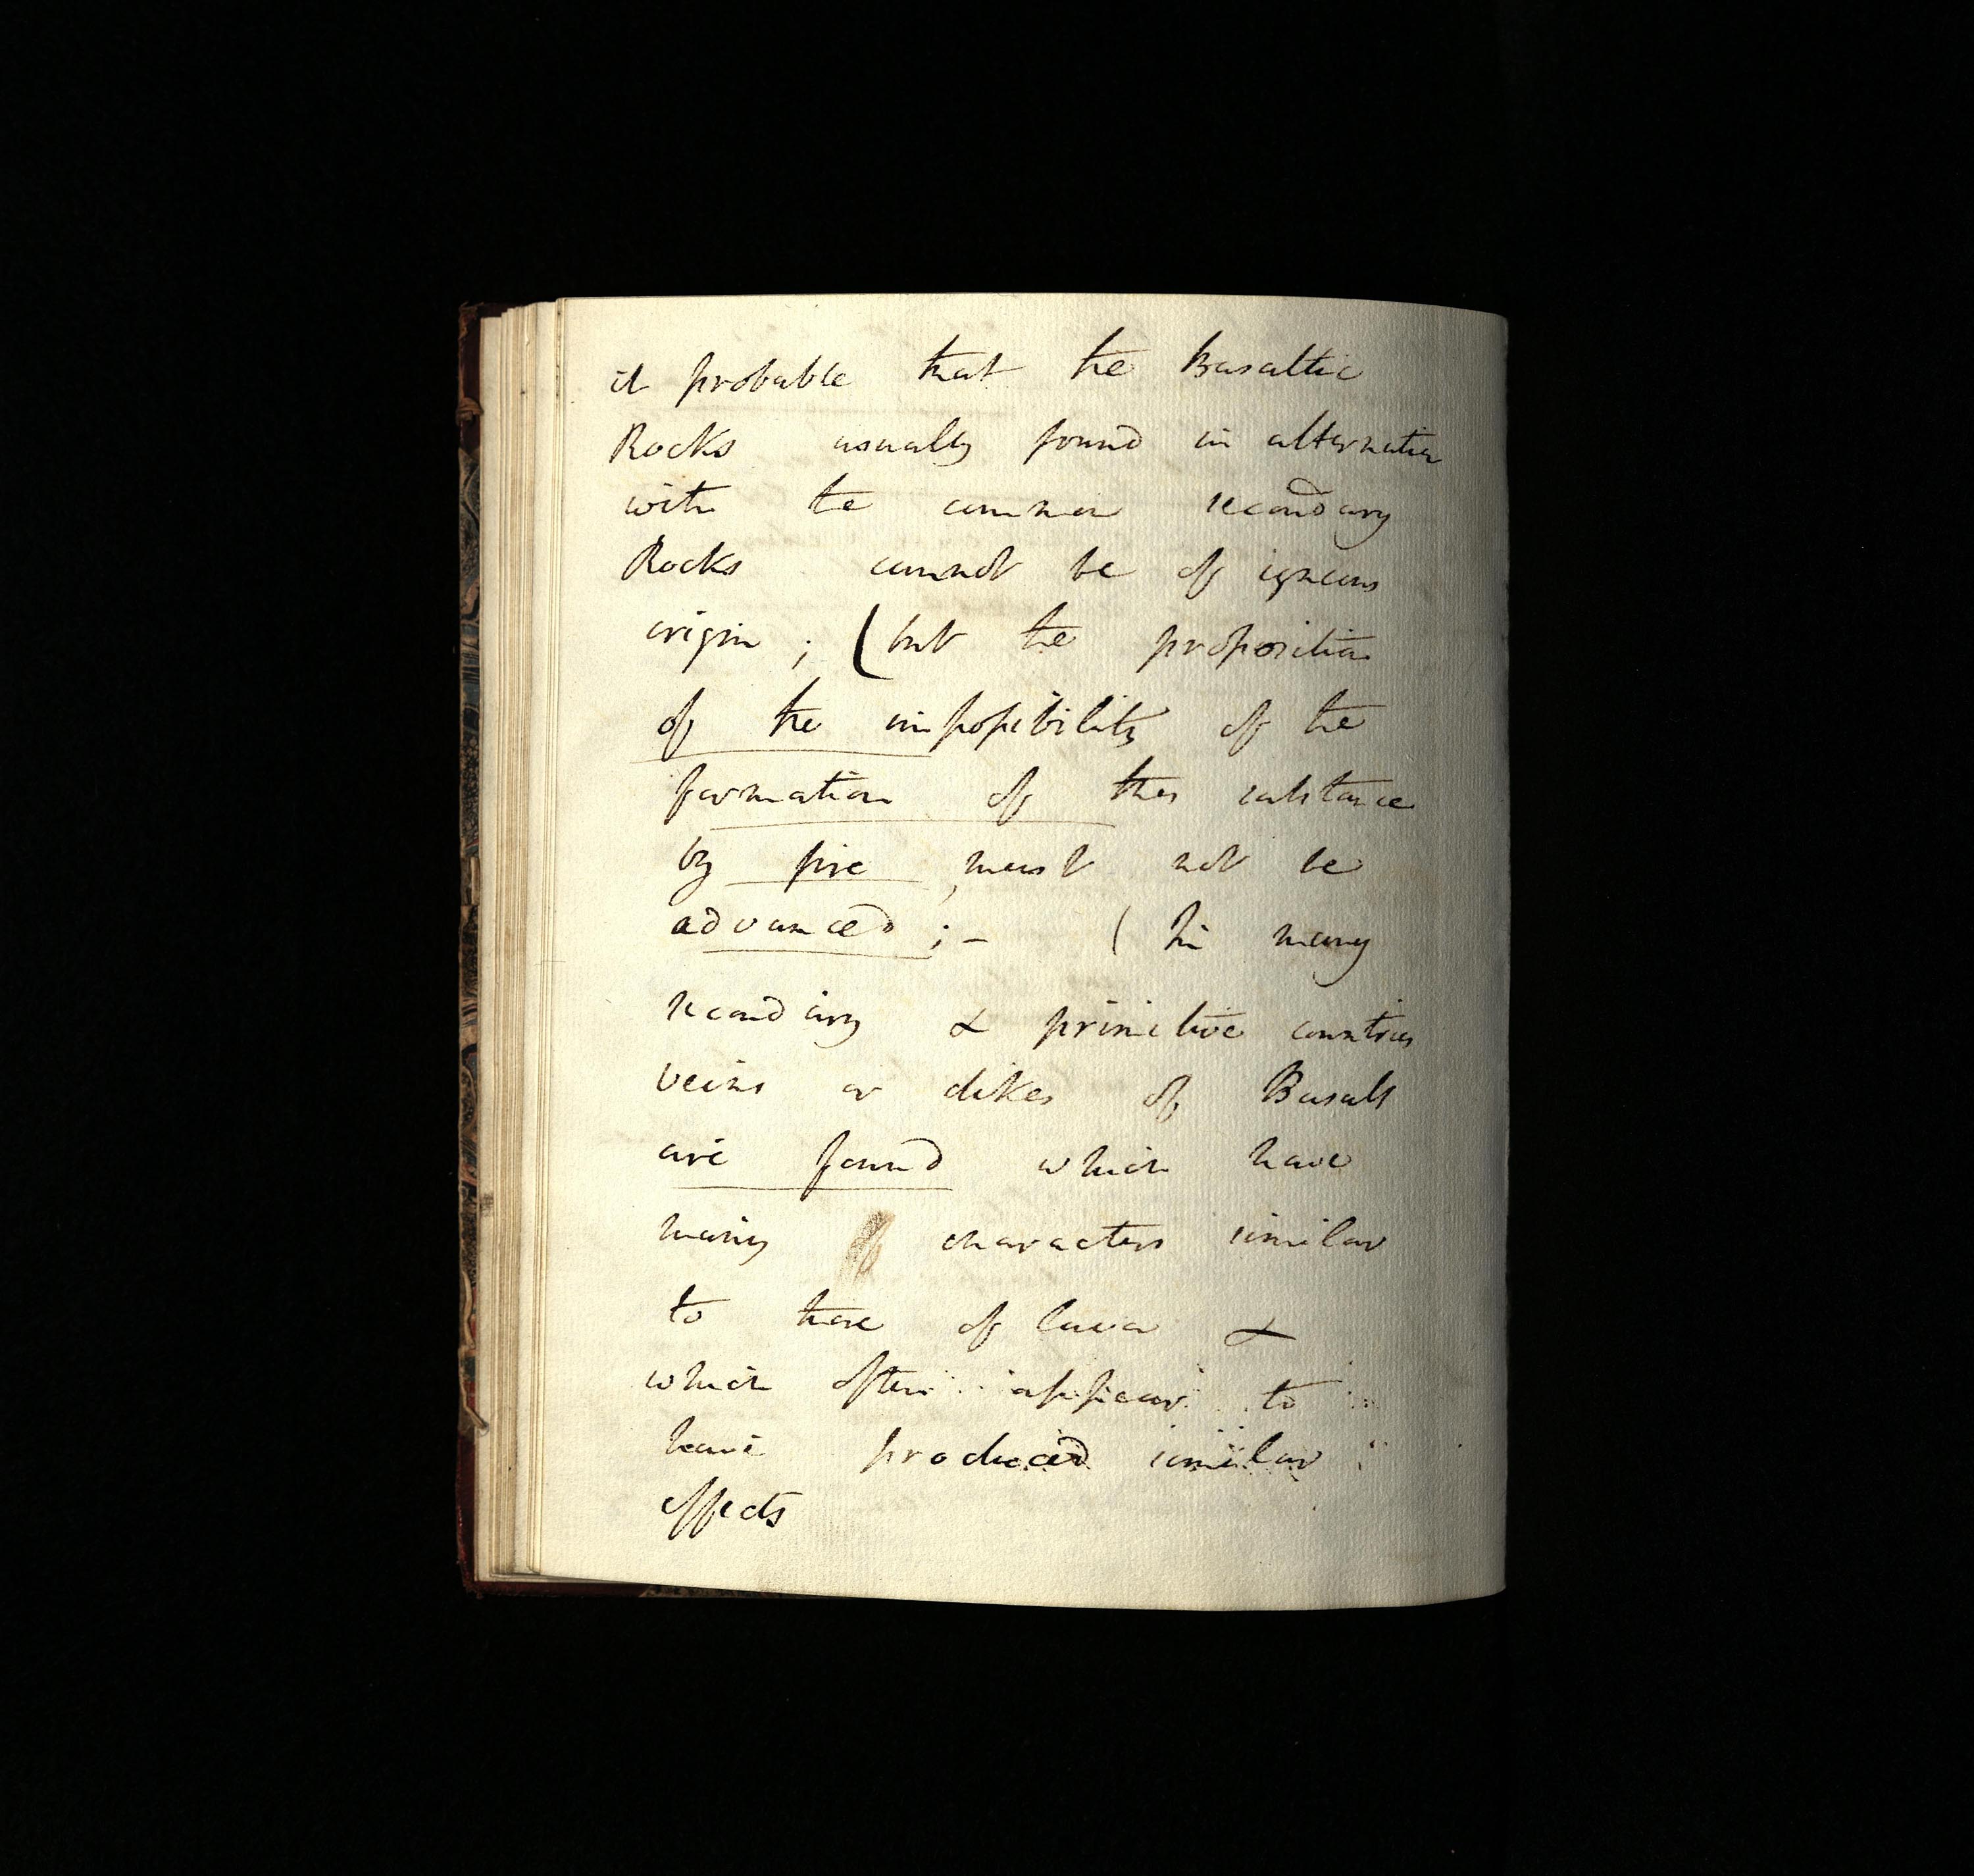 it probable that the Basaltic
Rocks usually found in alternation
with the common secondary
Rocks cannot be of igneous
origin ; (but the proposition
of the impossibility of the
formation of this substance
by fire must not be
advanced ; - ( In many
secondary & primitive countries
veins or dikes of Basalt
are found which have
many of characters similar
to those of lava &
which often appear to
have produced similar
effects